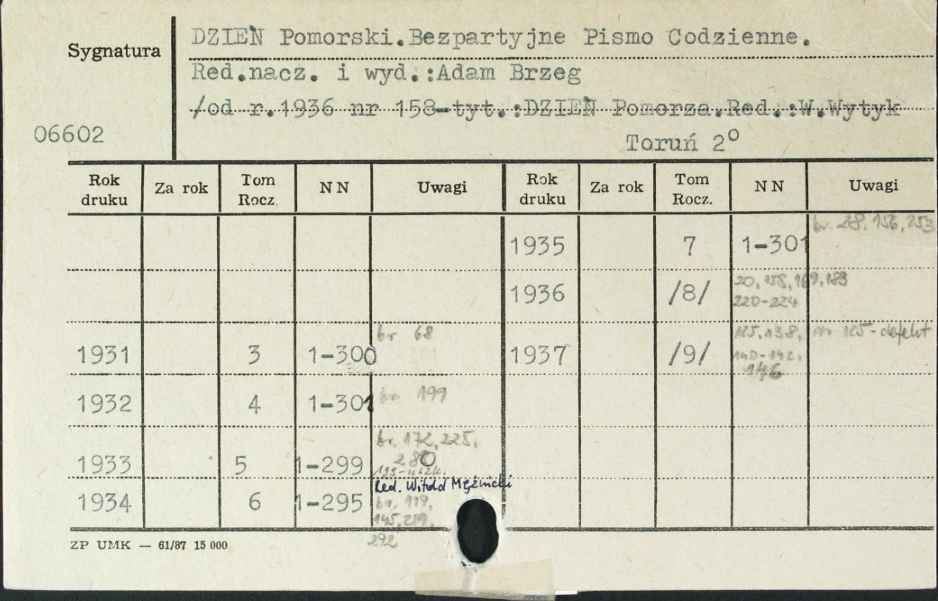 Sygnatura
DZIEŃ Pomorski.Bezpartyjne Pismo Codzienne.
Red.nacz. i wyd.:Adam Brzeg
/od r.1936 nr 158-tyt.:DZIEŃ Pomorza.Red.:W.Wytyk
06602
Toruń 2⁰
Rok druku Za rok Tom Rocz. NN Uwagi Rok druku Za rok Tom Rocz. NN Uwagi
1935 7 1-301 br. 28, 156, 253
1936 /8/ 20, 158, 169, 183
220-224
1931 3 1-300 br 68
1937 /9/ 125, 138, nr 125-defekt
140-142,
146
1932 4 1-301 br 199
1933 5 1-299 br. 172, 225,
280
Red. Witold Mężnicki
1934 6 1-295 br. 119,
145, 219,
292
ZP UMK — 61/87 15 000